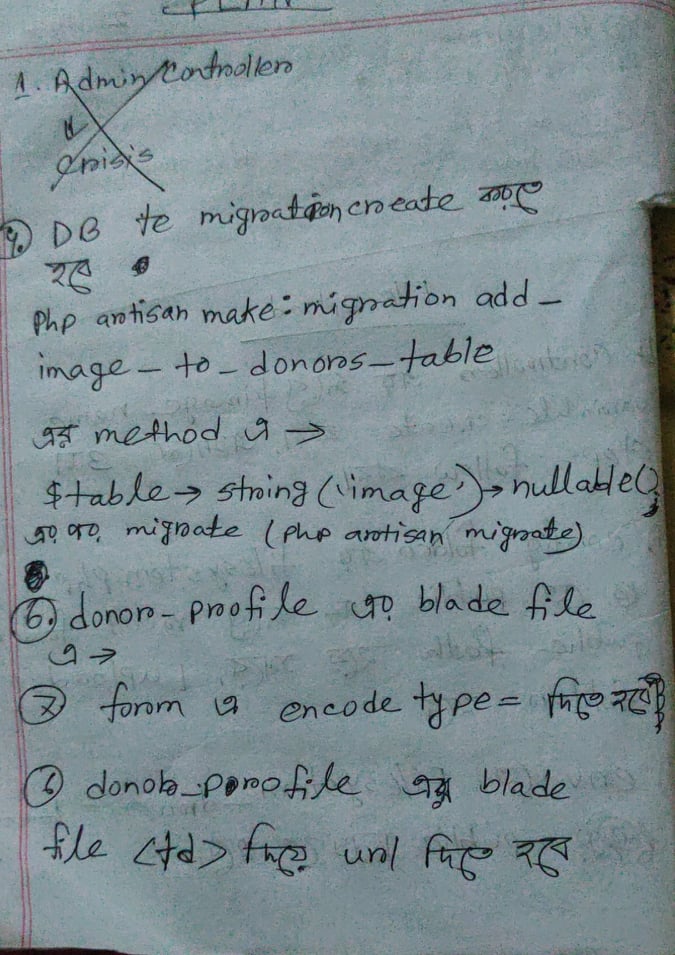 PLAN
1. Admin Controller
Crisis
DB te migration create করতে
হবে
php artisan make: migration add_
image_to_donors_table
এর method এ →
$table → string ('image') → nullable();
এর পর migrate (php artisan migrate)
6. donor-profile এর blade file
এ →
form এ encode type = দিতে হবে
donor_profile এর blade
file <td> দিয়ে url দিতে হবে